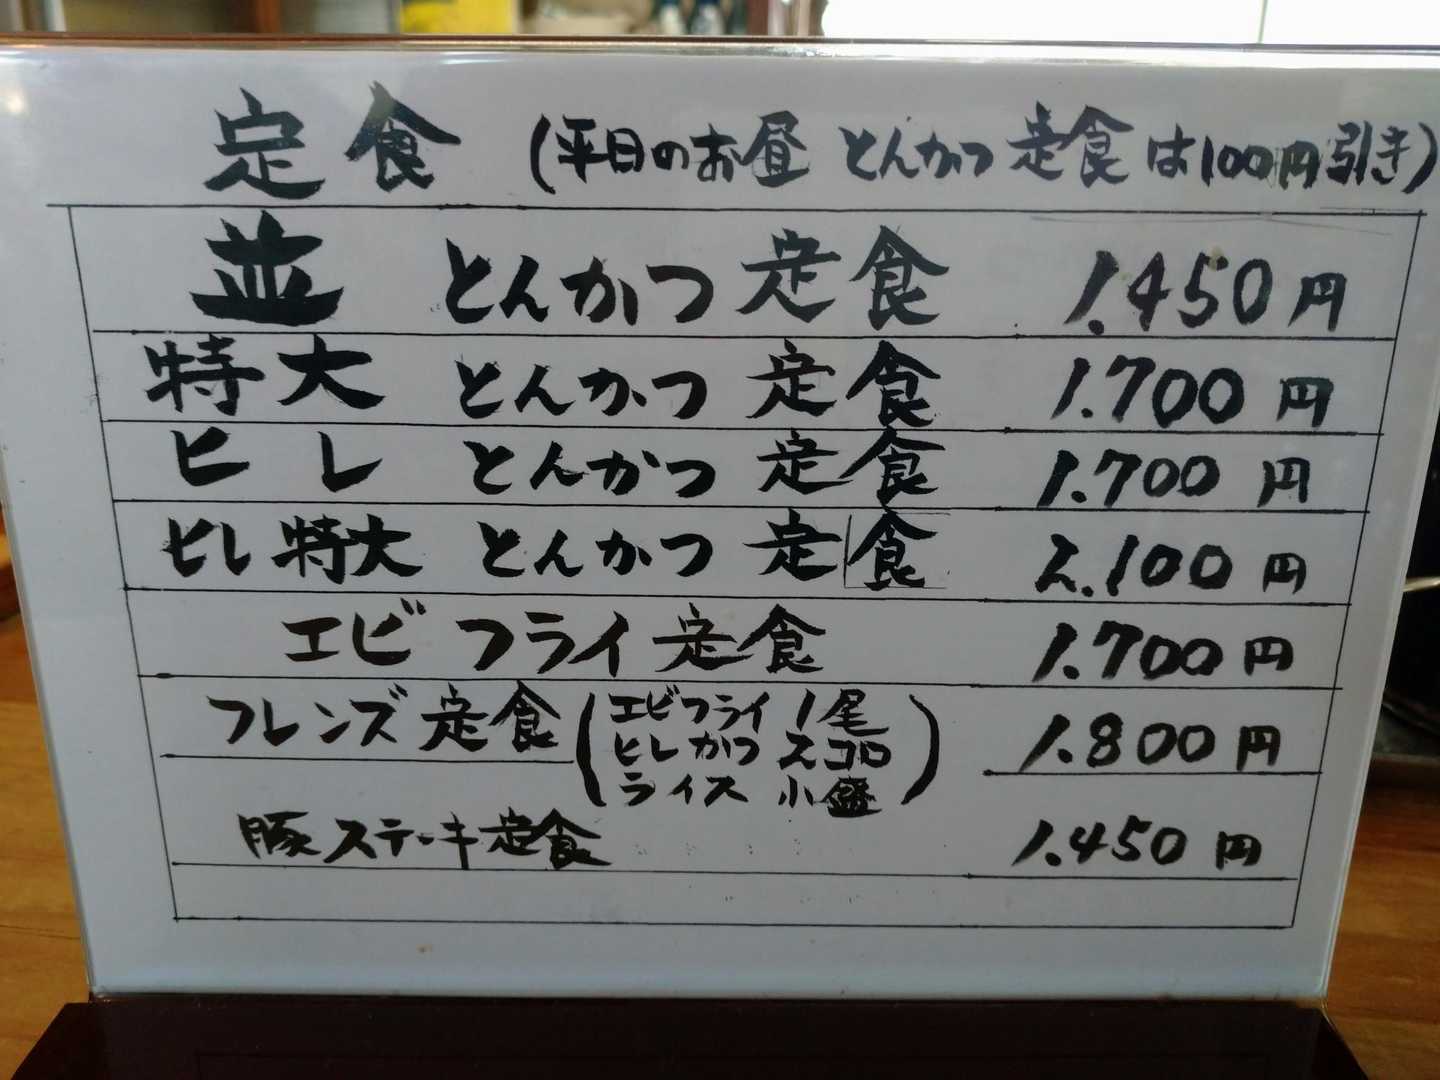 定食 (平日のお昼 とんかつ定食は100円引き)
並 とんかつ定食 1.450円
特大 とんかつ定食 1.700円
ヒレ とんかつ定食 1.700円
ヒレ特大 とんかつ定食 2.100円
エビフライ定食 1.700円
フレンズ定食 (エビフライ 1尾 1.800円
ヒレかつ 2コロ
ライス 小盛)
豚ステーキ定食 1.450円